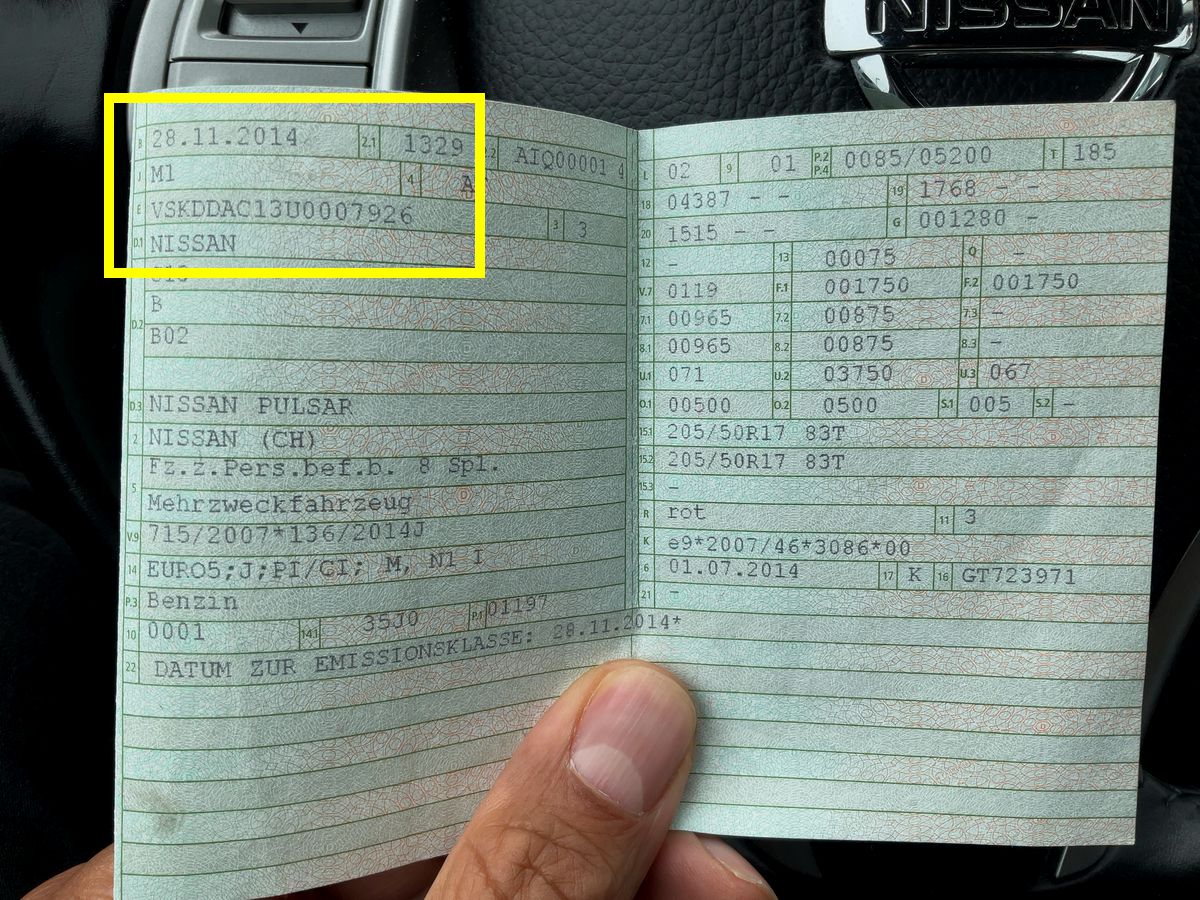 NISSAN
B 28.11.2014 2.1 1329 2.2 AIQ00001 4
J M1 4
E VSKDDAC13U0007926 3 3
D.1 NISSAN
D.2
B
B02
D.3 NISSAN PULSAR
2 NISSAN (CH)
5 Fz.z.Pers.bef.b. 8 Spl.
Mehrzweckfahrzeug
V.9 715/2007*136/2014J
14 EURO5;J;PI/CI; M, N1 I
P.3 Benzin
10 0001 14.1 35J0 P.1 01197
22 DATUM ZUR EMISSIONSKLASSE: 28.11.2014*
L 02 9 01 P.2 P.4 0085/05200 T 185
18 04387 - - 19 1768 - -
20 1515 - - G 001280 -
12 - 13 00075 Q -
V.7 0119 F.1 001750 F.2 001750
7.1 00965 7.2 00875 7.3 -
8.1 00965 8.2 00875 8.3 -
U.1 071 U.2 03750 U.3 067
O.1 00500 O.2 0500 S.1 005 S.2 -
15.1 205/50R17 83T
15.2 205/50R17 83T
15.3 -
R rot 11 3
K e9*2007/46*3086*00
6 01.07.2014 17 K 16 GT723971
21 -